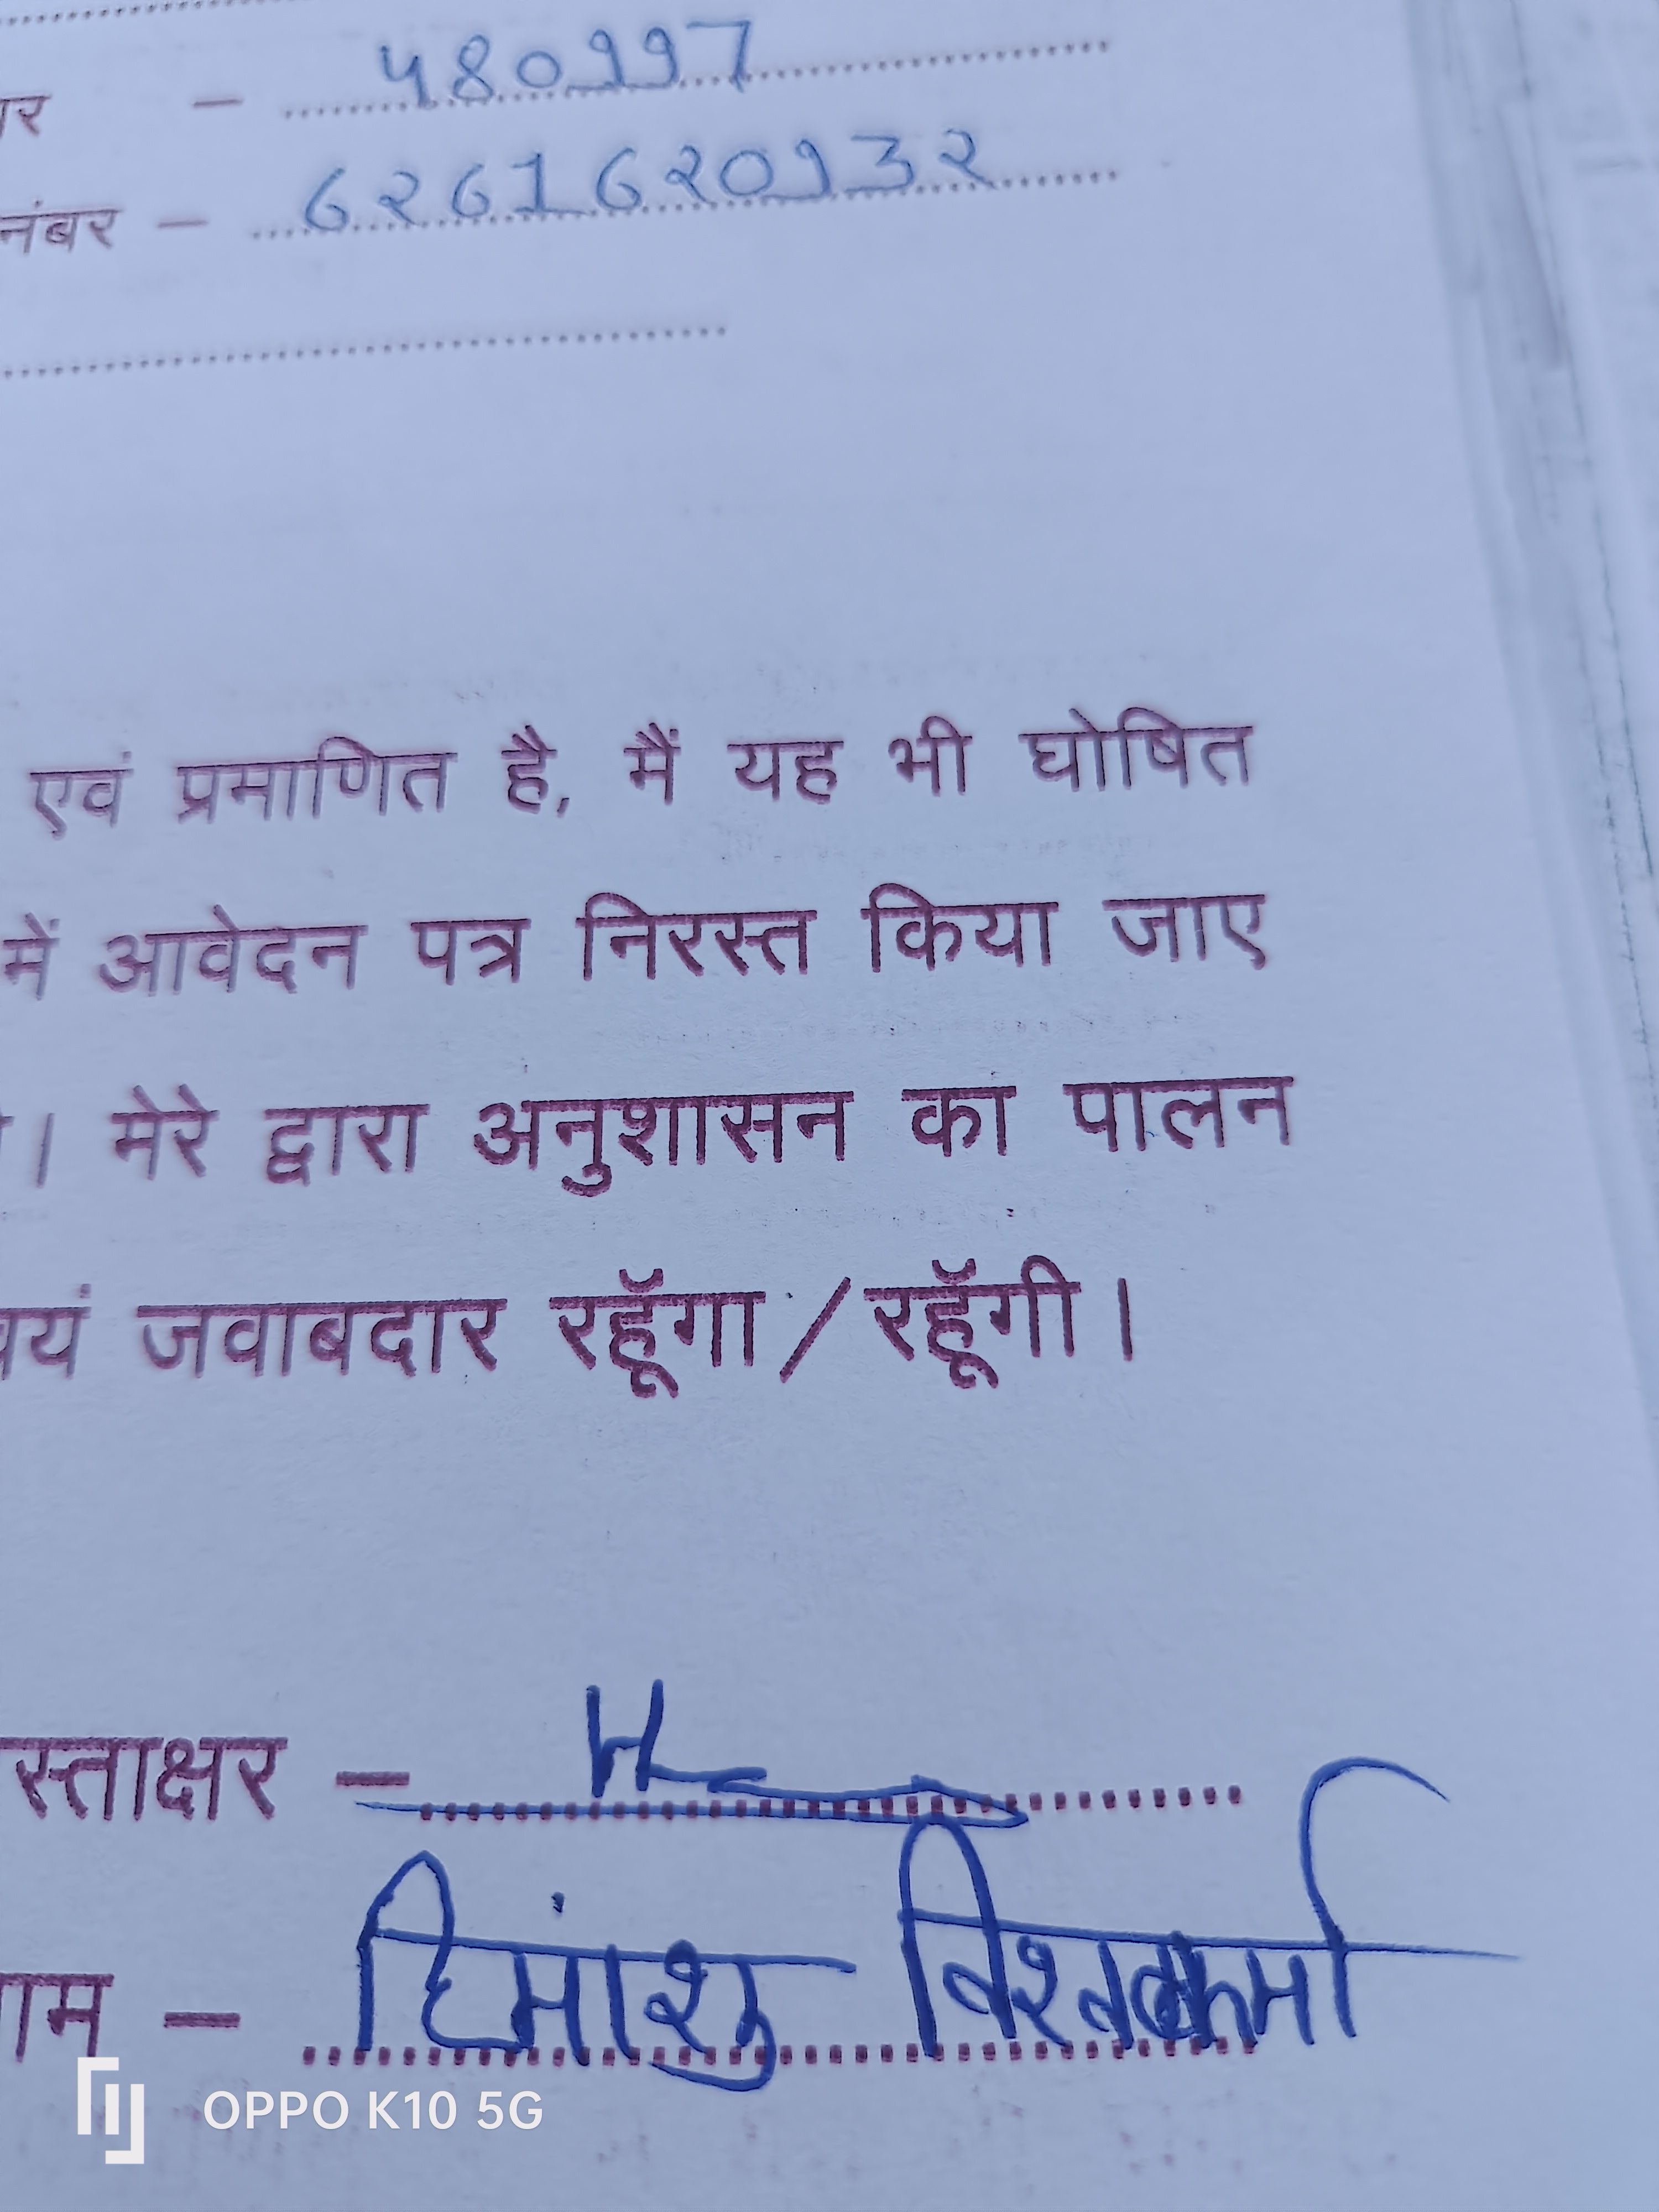 र - 480997
नंबर - 6261620132
एवं प्रमाणित है, मैं यह भी घोषित
में आवेदन पत्र निरस्त किया जाए
। मेरे द्वारा अनुशासन का पालन
वयं जवाबदार रहूॅंगा / रहूॅंगी ।
स्ताक्षर -
ाम - हिमांशु विश्वकर्मा
OPPO K10 5G